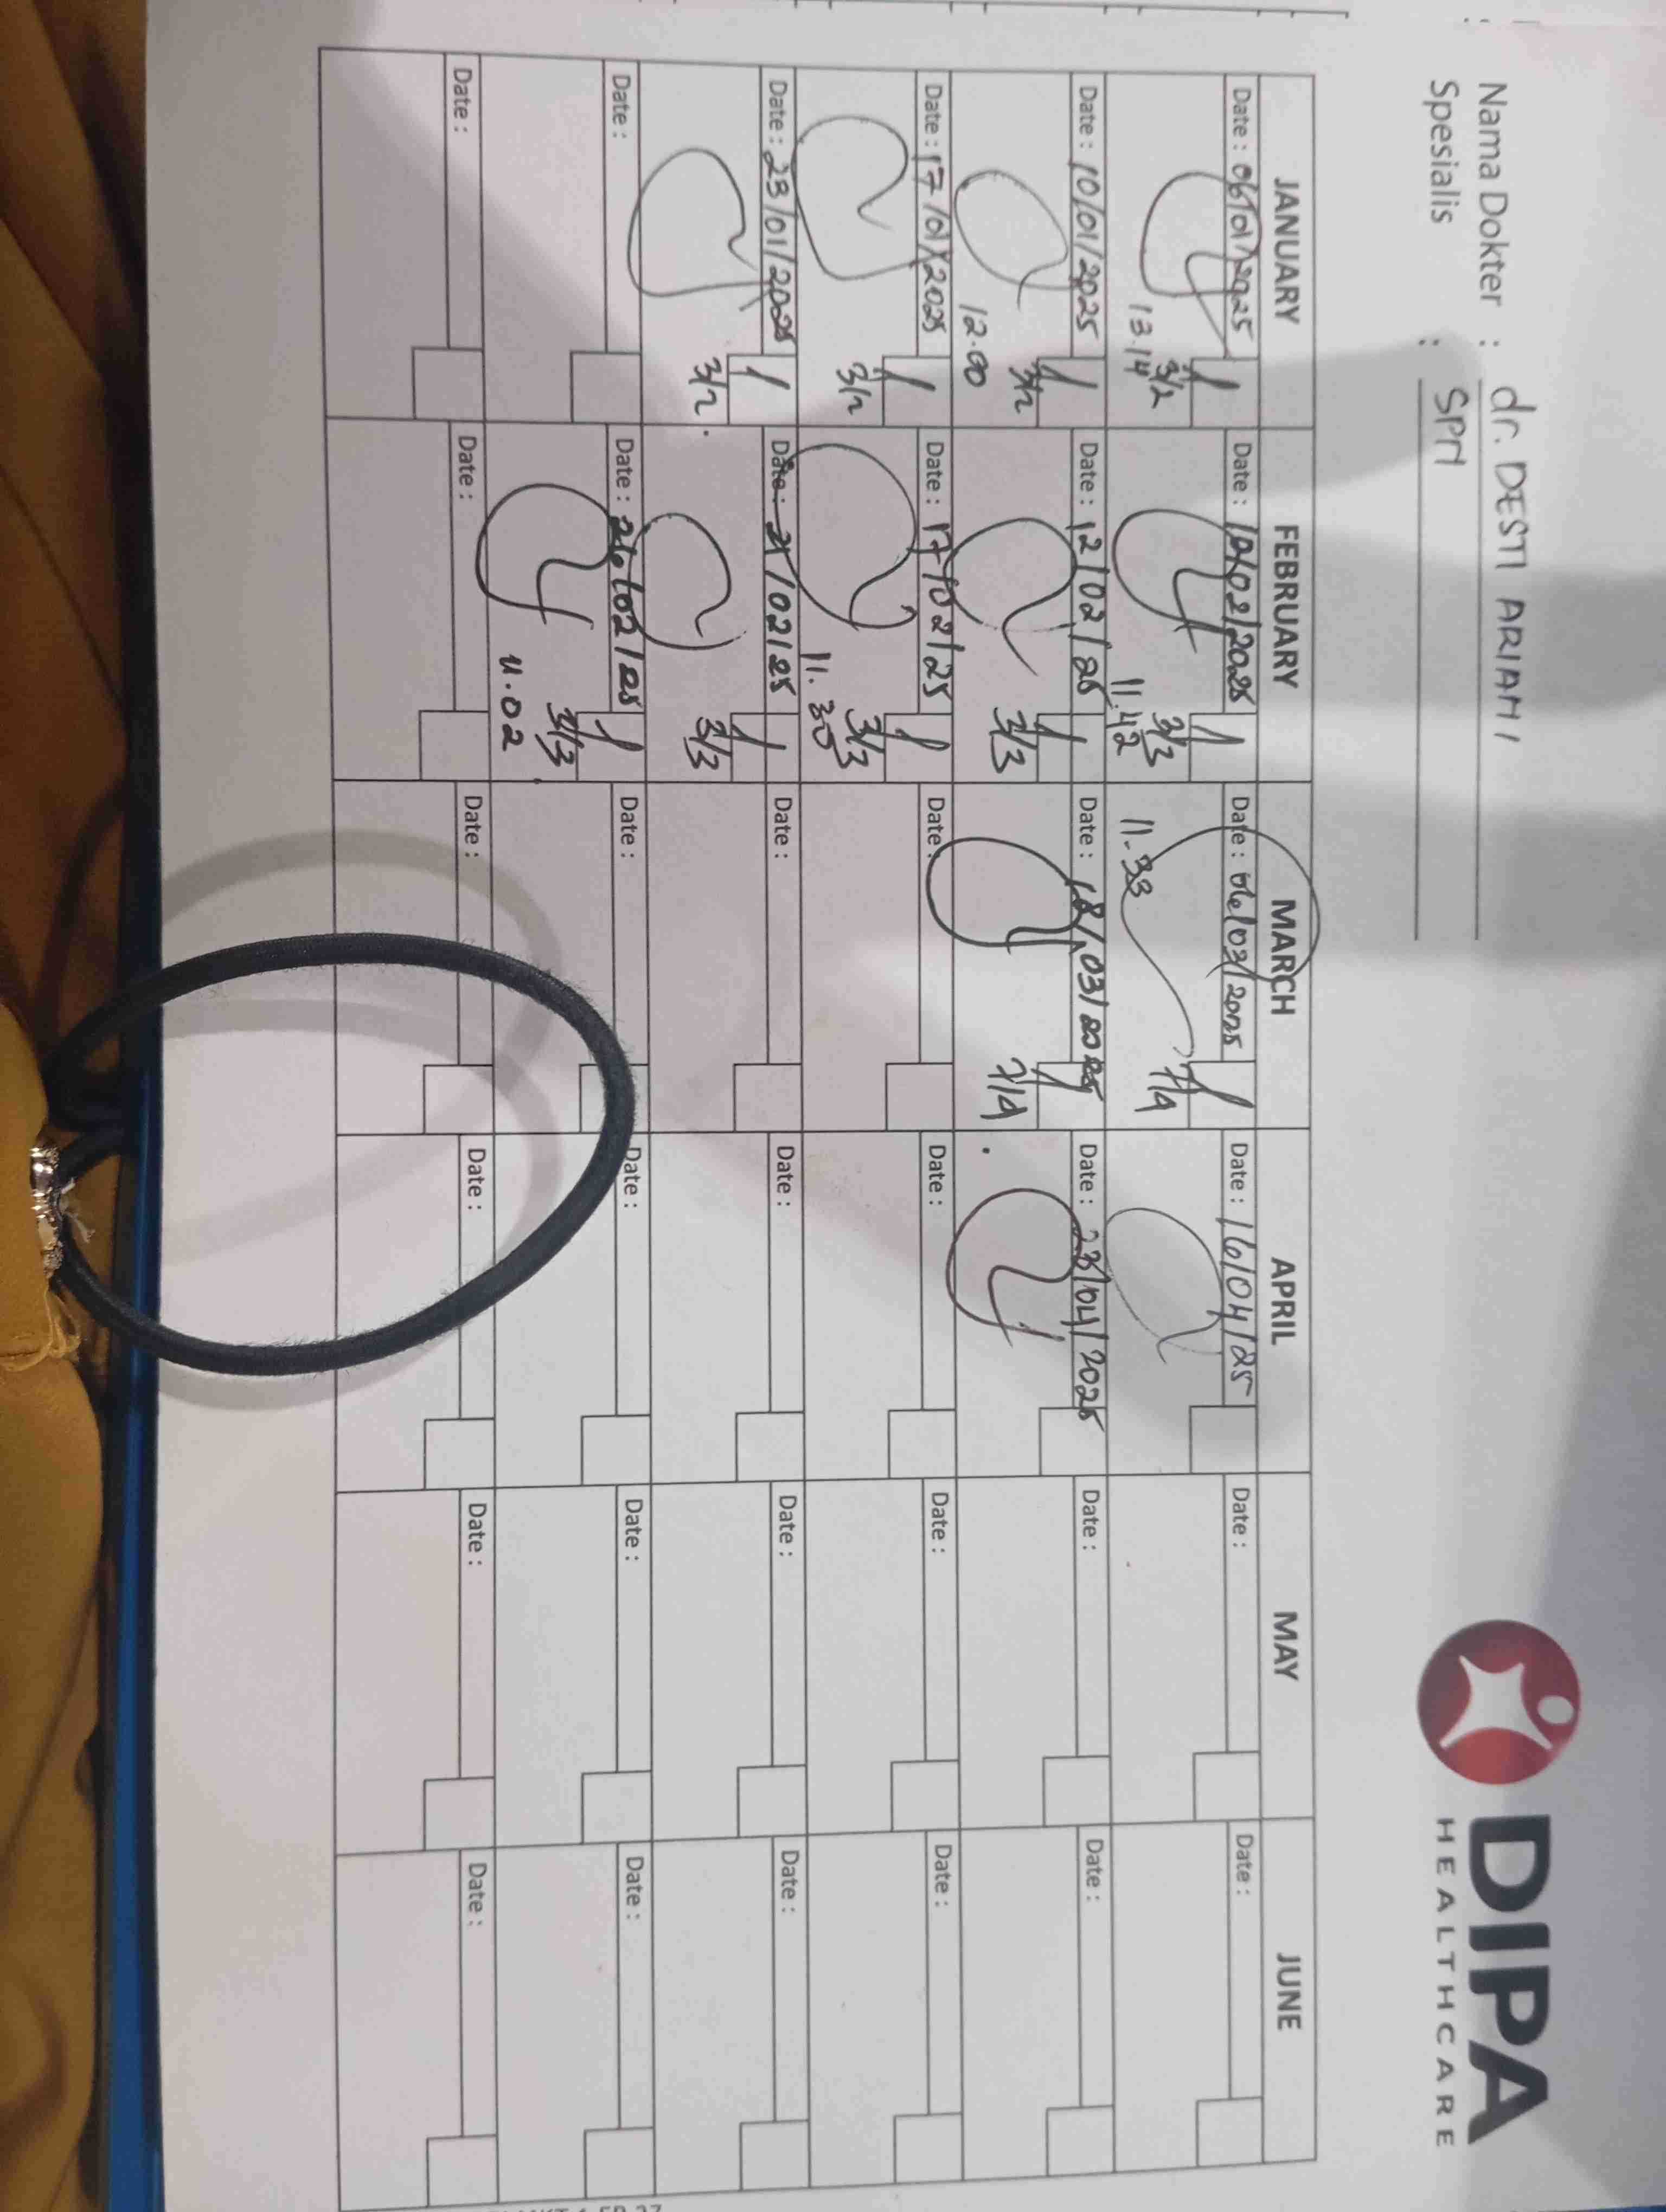 Nama Dokter : dr. DESTI ARIANI
Spesialis : SPM
DIPA
HEALTHCARE
JANUARY FEBRUARY MARCH APRIL MAY JUNE
Date : 06/01/2025 Date : 10/02/2025 Date : 06/03/2025 Date : 16/04/25 Date : Date :
13.14 3/2 11.42 3/3 11.33 7/4
Date : 10/01/2025 Date : 12/02/25 Date : 18/03/2025 Date : 23/04/2025 Date : Date :
12.00 3/2 3/3 7/4
Date : 17/01/2025 Date : 17/02/25 Date : Date : Date : Date :
3/2 11.30 3/3
Date : 23/01/2025 Date : 21/02/25 Date : Date : Date : Date :
3/2 3/3
Date : Date : 26/02/25 Date : Date : Date : Date :
11.02 3/3
Date : Date : Date : Date : Date : Date :